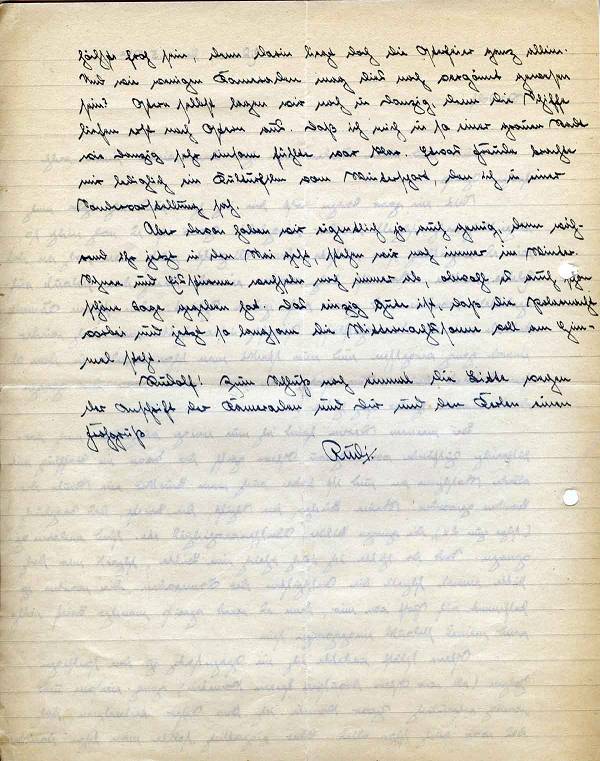 höchst froh sein, denn darin liegt doch die Osterfeier ganz allein.
Und wie wenigen Kameraden mag dies noch vergönnt gewesen
sein? Ostern selbst lagen wir noch in Danzig, denn die Schiffe
liefen erst nach Ostern aus. Daß ich mich in so einer großen Stadt
wie Danzig sehr einsam fühlte war klar. Etwas Freude brachte
mir lediglich ein Kulturfilm vom Wintersport, den ich in einer
Sondervorstellung sah.
Aber davon haben wir eigentlich ja auch genug, denn wäh-
rend Ihr jetzt in den Mai geht, stehen wir noch immer im Winter.
Schnee und Eisstürme wechseln noch immer ab, obwohl es auch schon
schöne Tage gegeben hat. Das einzig Gute ist, daß die Polarnacht
vorbei und jetzt so langsam die Mitternachtssonne voll am Him-
mel steht.
Rudolf! Zum Schluß noch einmal die Bitte wegen
der Anschrift der Kameraden und Dir und den Kerlen einen
Frohgruß
Rudi.